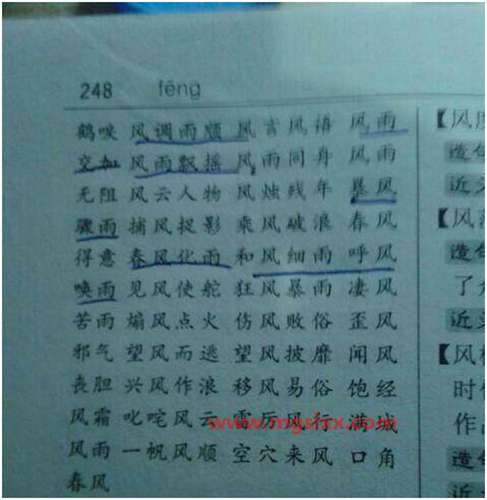 248 fēng
鹤唳 风调雨顺 风言风语 风雨 【风度
交加 风雨飘摇 风雨同舟 风雨 造句
无阻 风云人物 风烛残年 暴风 近义
骤雨 捕风捉影 乘风破浪 春风 【风
得意 春风化雨 和风细雨 呼风 造句
唤雨 见风使舵 狂风暴雨 凄风 了
苦雨 煽风点火 伤风败俗 歪风 近义
邪气 望风而逃 望风披靡 闻风 【风
丧胆 兴风作浪 移风易俗 饱经 时
风霜 叱咤风云 雷厉风行 满城 作
www.mgsfxx.com
风雨 一帆风顺 空穴来风 口角 造句
春风 近